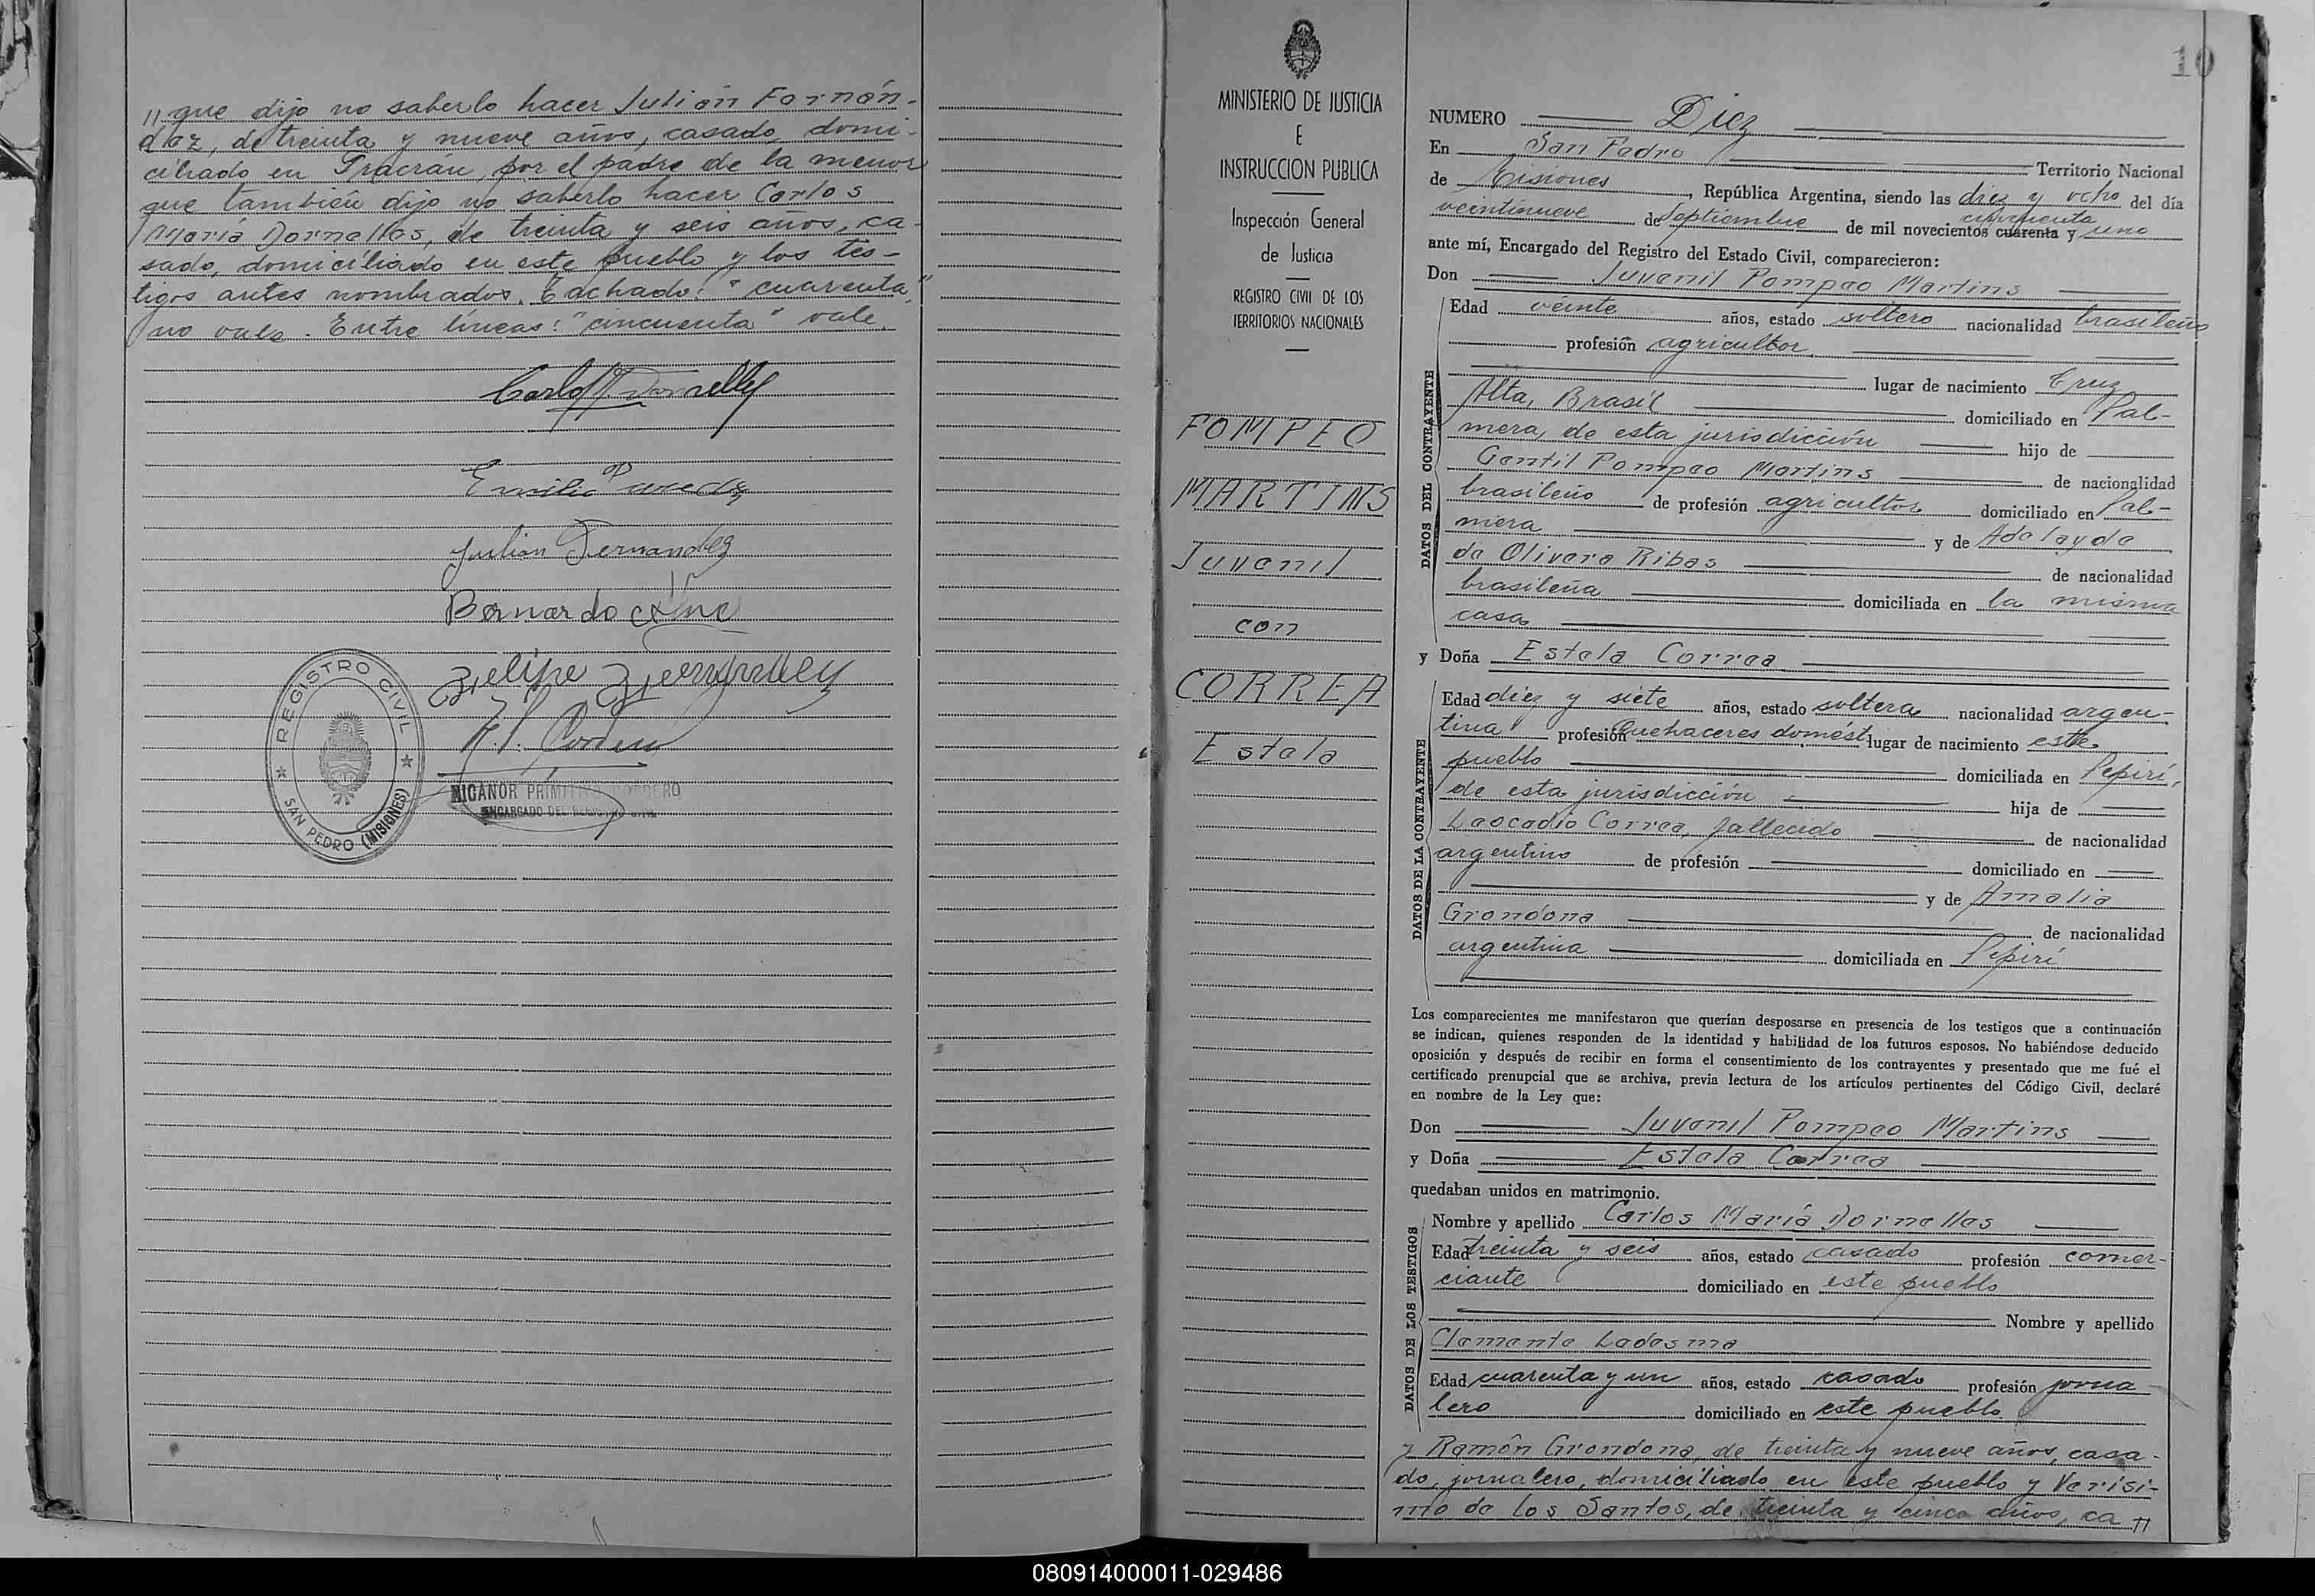 " que dijo no saberlo hacer Julián Fernán-
dez, de treinta y nueve años, casado, domi-
ciliado en Tracrán, por el padre de la menor
que también dijo no saberlo hacer Carlos
María Dornelles, de treinta y seis años, ca-
sado, domiciliado en este pueblo y los tes-
tigos antes nombrados. Tachado: "cuarenta",
no vale. Entre líneas: "cincuenta" vale.
Carlos M. Dornelles
Emilio Paredz
Julian Fernandez
Bernardo
Felipe
N. P. Cordero
REGISTRO CIVIL
SAN PEDRO (MISIONES)
NICANOR PRIMITIVO CORDERO
ENCARGADO DEL REGISTRO CIVIL
MINISTERIO DE JUSTICIA
E
INSTRUCCION PUBLICA
Inspección General
de Justicia
REGISTRO CIVIL DE LOS
TERRITORIOS NACIONALES
POMPEO
MARTINS
Juvenil
con
CORREA
Estela
10
NUMERO Diez
En San Pedro Territorio Nacional
de Misiones, República Argentina, siendo las diez y ocho del día
cincuenta
veintinueve de Septiembre de mil novecientos cuarenta y uno
ante mí, Encargado del Registro del Estado Civil, comparecieron:
Don Juvenil Pompeo Martins
DATOS DEL CONTRAYENTE
Edad veinte años, estado soltero nacionalidad brasileño
profesión agricultor
lugar de nacimiento Cruz
Alta, Brasil domiciliado en Pal-
mera, de esta jurisdicción hijo de
Gentil Pompeo Martins de nacionalidad
brasileño de profesión agricultor domiciliado en Pal-
mera y de Adelayde
de Olivera Ribas de nacionalidad
brasileña domiciliada en la misma
casa
y Doña Estela Correa
DATOS DE LA CONTRAYENTE
Edad diez y siete años, estado soltera nacionalidad argen-
tina profesión Quehaceres domést. lugar de nacimiento este
pueblo domiciliada en Pepirí,
de esta jurisdicción hija de
Leocadio Correa, fallecido de nacionalidad
argentino de profesión domiciliado en
y de Amalia
Grondona de nacionalidad
argentina domiciliada en Pepirí
Los comparecientes me manifestaron que querían desposarse en presencia de los testigos que a continuación
se indican, quienes responden de la identidad y habilidad de los futuros esposos. No habiéndose deducido
oposición y después de recibir en forma el consentimiento de los contrayentes y presentado que me fué el
certificado prenupcial que se archiva, previa lectura de los artículos pertinentes del Código Civil, declaré
en nombre de la Ley que:
Don Juvenil Pompeo Martins
y Doña Estela Correa
quedaban unidos en matrimonio.
DATOS DE LOS TESTIGOS
Nombre y apellido Carlos María Dornelles
Edad treinta y seis años, estado casado profesión comer-
ciante domiciliado en este pueblo
Nombre y apellido
Clemente Ledesma
Edad cuarenta y un años, estado casado profesión jorna
lero domiciliado en este pueblo.
y Ramón Grondona, de treinta y nueve años, casa-
do, jornalero, domiciliado en este pueblo y Verísi-
mo de los Santos, de treinta y cinco años, ca "
080914000011-029486